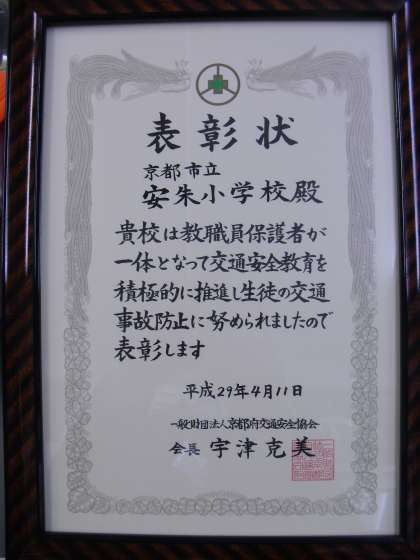 表彰状
京都市立
安朱小学校殿
貴校は教職員保護者が
一体となって交通安全教育を
積極的に推進し生徒の交通
事故防止に努められましたので
表彰します
平成29年4月11日
一般財団法人京都府交通安全協会
会長 宇津克美